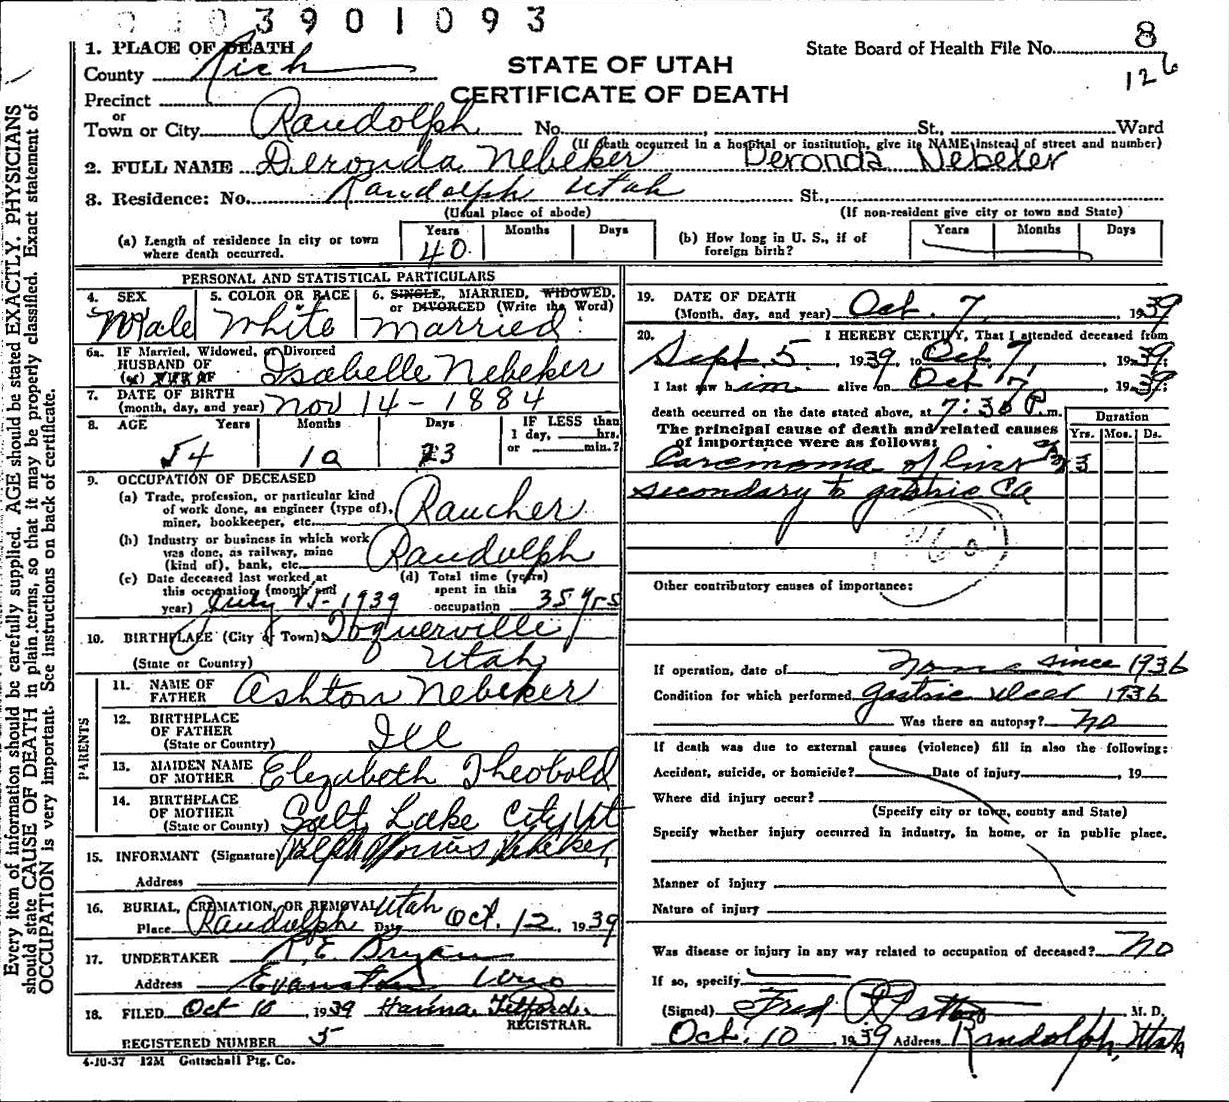 3901093
1. PLACE OF DEATH
State Board of Health File No. 8
126
County Rich
STATE OF UTAH
CERTIFICATE OF DEATH
Precinct
or
Town or City Randolph No. St., Ward
(If death occurred in a hospital or institution, give its NAME instead of street and number)
2. FULL NAME Deronda Nebeker Deronda Nebeker
3. Residence: No. Randolph Utah St.,
(Usual place of abode) (If non-resident give city or town and State)
(a) Length of residence in city or town where death occurred. Years 40 Months Days
(b) How long in U. S., if of foreign birth? Years Months Days
PERSONAL AND STATISTICAL PARTICULARS
4. SEX Male
5. COLOR OR RACE White
6. SINGLE, MARRIED, WIDOWED, or DIVORCED (Write the Word) Married
6a. IF Married, Widowed, or Divorced
HUSBAND OF
(or) WIFE OF Isabelle Nebeker
7. DATE OF BIRTH
(month, day, and year) Nov 14 - 1884
8. AGE Years 54 Months 10 Days 23
IF LESS than 1 day, hrs. or min.?
9. OCCUPATION OF DECEASED
(a) Trade, profession, or particular kind of work done, as engineer (type of), miner, bookkeeper, etc. Rancher
(b) Industry or business in which work was done, as railway, mine (kind of), bank, etc. Randolph
(c) Date deceased last worked at this occupation (month and year) July 15 - 1939
(d) Total time (years) spent in this occupation 35 yrs
10. BIRTHPLACE (City or Town) Toquerville
(State or Country) Utah
PARENTS
11. NAME OF FATHER Ashton Nebeker
12. BIRTHPLACE OF FATHER
(State or Country) Ill
13. MAIDEN NAME OF MOTHER Elizabeth Theobold
14. BIRTHPLACE OF MOTHER
(State or Country) Salt Lake City Ut
15. INFORMANT (Signature) Nebeker
Address
16. BURIAL, CREMATION, OR REMOVAL Utah
Place Randolph Date Oct. 12, 1939
17. UNDERTAKER R. E. Bryan
Address Evanston Wyo
18. FILED Oct 10, 1939 Hanna Telford
REGISTRAR.
REGISTERED NUMBER 5
4-10-37 12M Gottschall Ptg. Co.
19. DATE OF DEATH
(Month, day, and year) Oct. 7, 1939
20. I HEREBY CERTIFY, That I attended deceased from
Sept 5, 1939, to Oct 7, 1939
I last saw him alive on Oct 7, 1939:
death occurred on the date stated above, at 7:30 P.m.
The principal cause of death and related causes of importance were as follows:
Duration
Yrs. Mos. Ds.
Carcinoma of liver 3
secondary to gastric Ca
46
Other contributory causes of importance:
If operation, date of None since 1936
Condition for which performed gastric ulcer 1936
Was there an autopsy? No
If death was due to external causes (violence) fill in also the following:
Accident, suicide, or homicide? Date of injury , 19
Where did injury occur?
(Specify city or town, county and State)
Specify whether injury occurred in industry, in home, or in public place.
Manner of injury
Nature of injury
Was disease or injury in any way related to occupation of deceased? No
If so, specify
(Signed) Fred Patton M. D.
Oct. 10 1939 Address Randolph, Utah
Every item of information should be carefully supplied. AGE should be stated EXACTLY. PHYSICIANS
should state CAUSE OF DEATH in plain terms, so that it may be properly classified. Exact statement of
OCCUPATION is very important. See instructions on back of certificate.